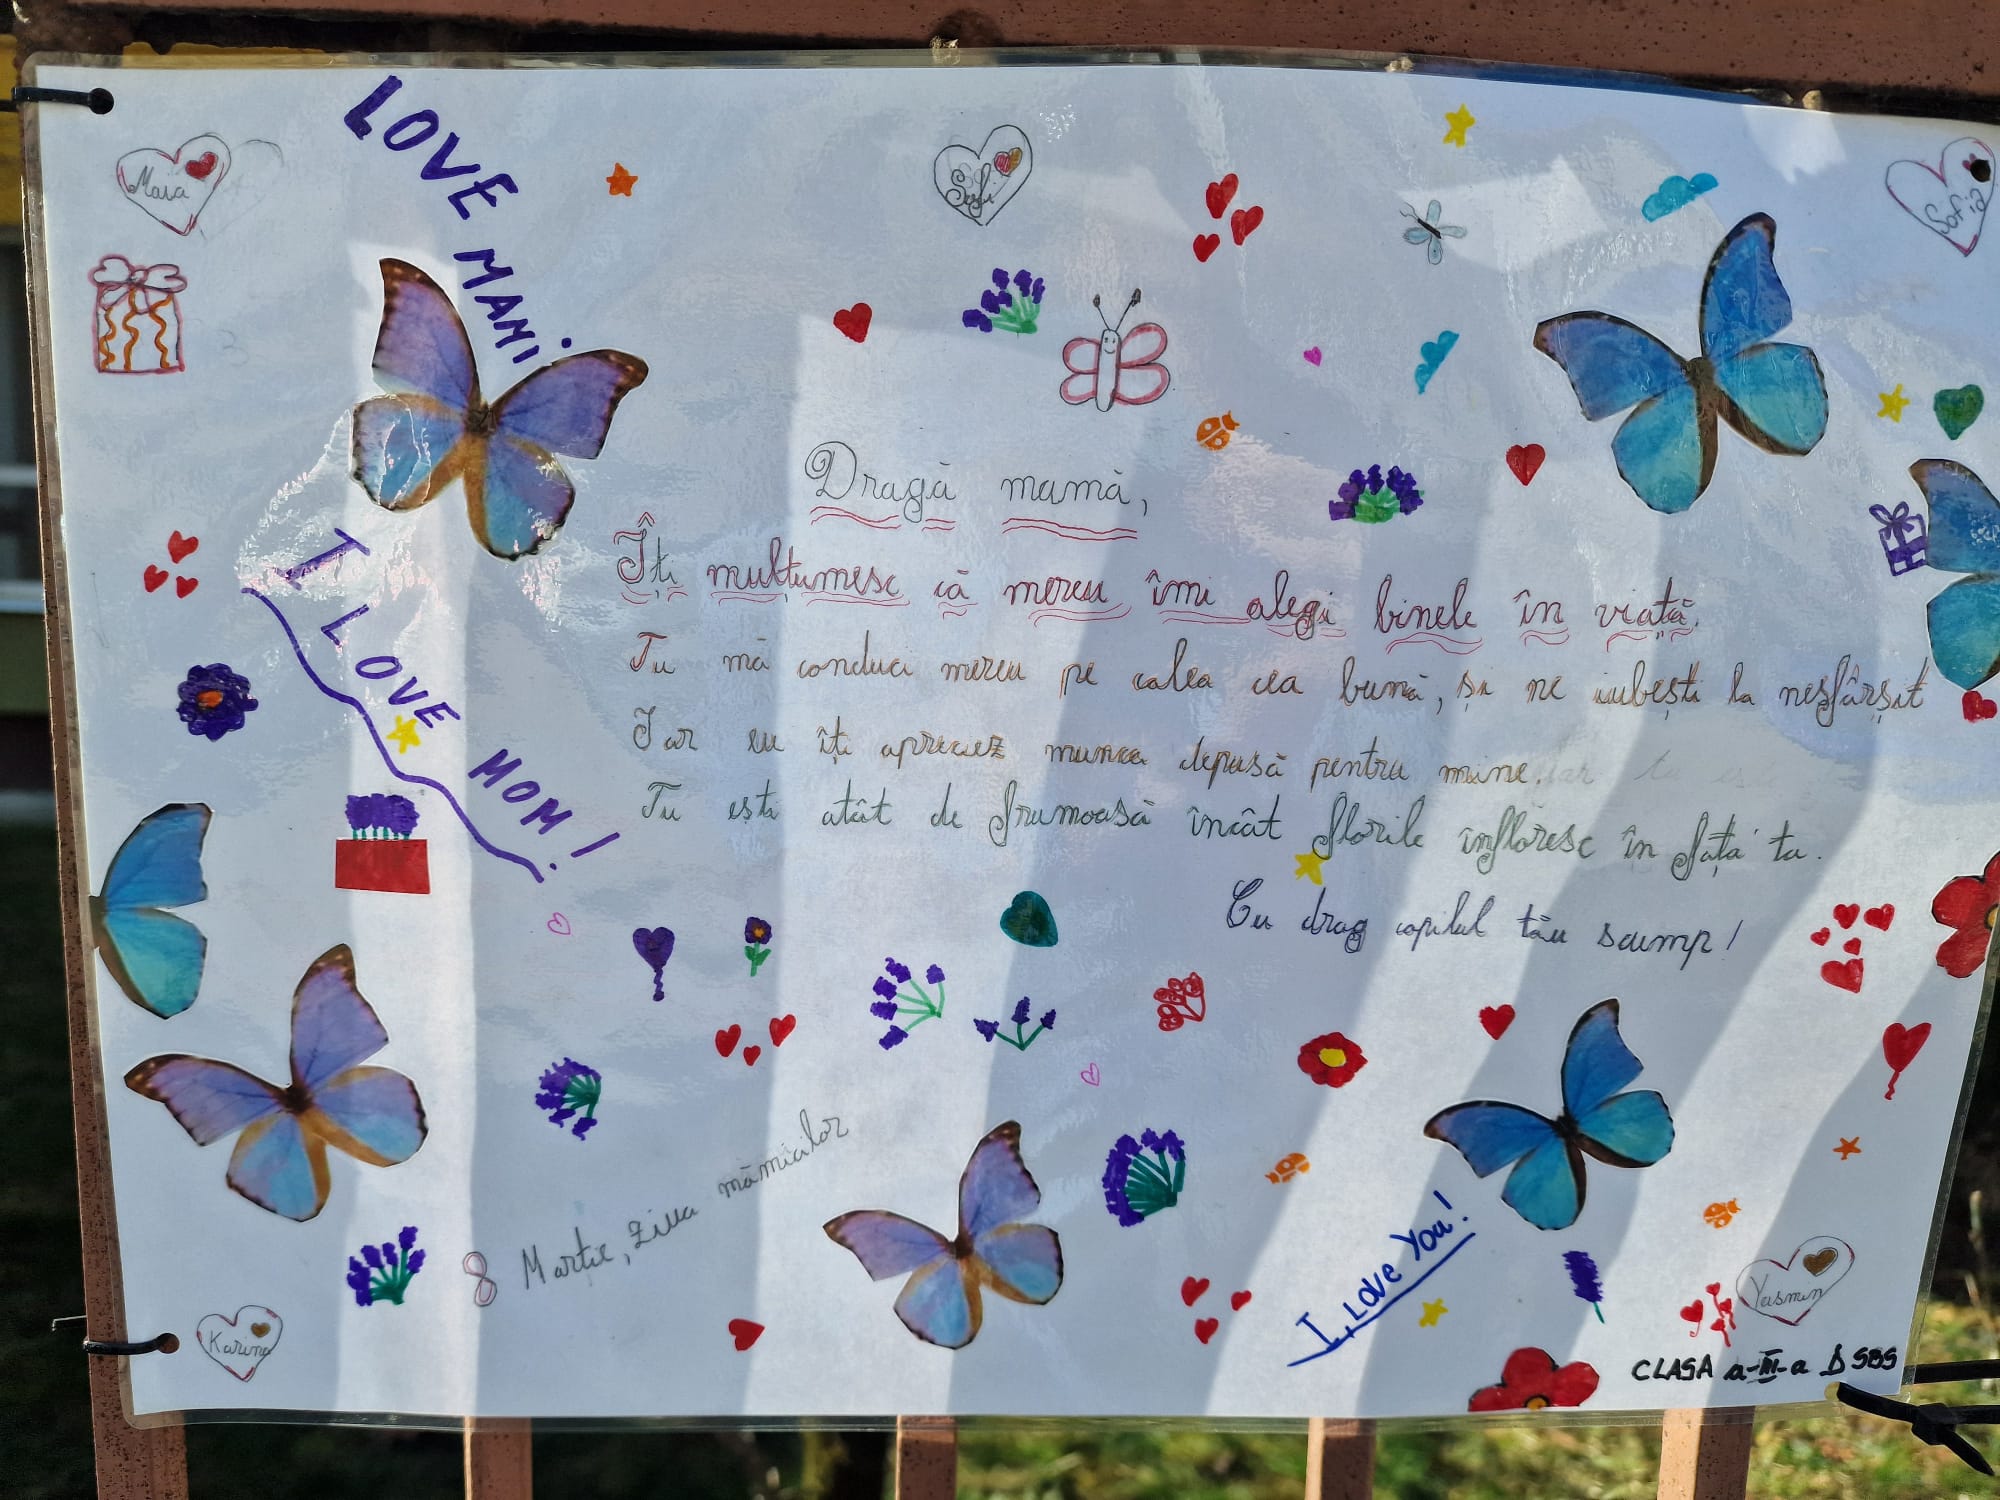 LOVE MAMI
Maia
Sofi
Sofia
Dragă mamă,
Îți mulțumesc că mereu îmi alegi binele în viață.
Tu mă conduci mereu pe calea cea bună, și ne iubești la nesfârșit
Iar eu îți apreciez munca depusă pentru mine.
Tu ești atât de frumoasă încât florile înfloresc în fața ta.
Cu drag copilul tău scump!
I LOVE MOM!
8 Martie, Ziua mămicilor
I Love You!
Karina
Yasmin
CLASA a-III-a D SBS